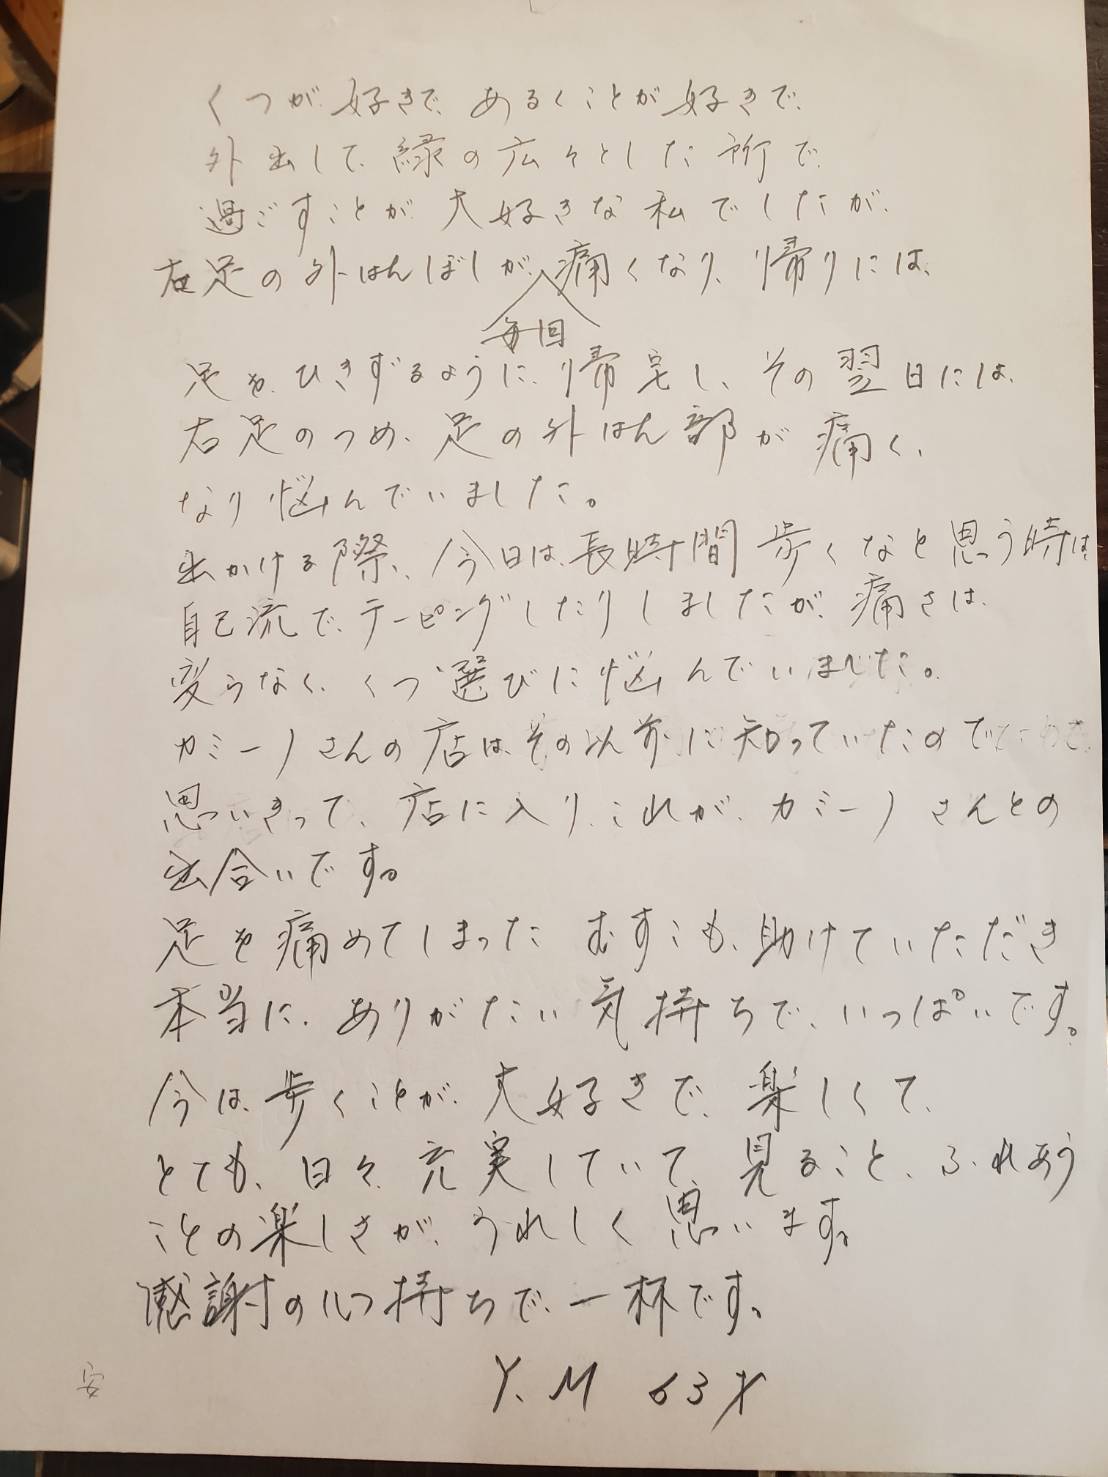 くつが好きで、あるくことが好きで、
外出して、緑の広々とした所で、
過ごすことが、大好きな私でしたが、
右足の外はんぼしが、痛くなり、帰りには、
毎回
足を、ひきずるように、帰宅し、その翌日には、
右足のつめ、足の外はん部が痛く、
なり悩んでいました。
出かける際、今日は、長時間歩くなと思う時は、
自己流で、テーピングしたりしましたが、痛さは、
変らなく、くつ選びに悩んでいました。
カミーノさんの店は、その以前に知っていたので
思いきって、店に入り、これが、カミーノさんとの
出合いです。
足を痛めてしまったむすこも、助けていただき
本当に、ありがたい気持ちで、いっぱいです。
今は、歩くことが、大好きで、楽しくて、
とても、日々、充実していて、見ること、ふれあう
ことの楽しさが、うれしく思います。
感謝の心持ちで、一杯です。
Y.M 63才
安